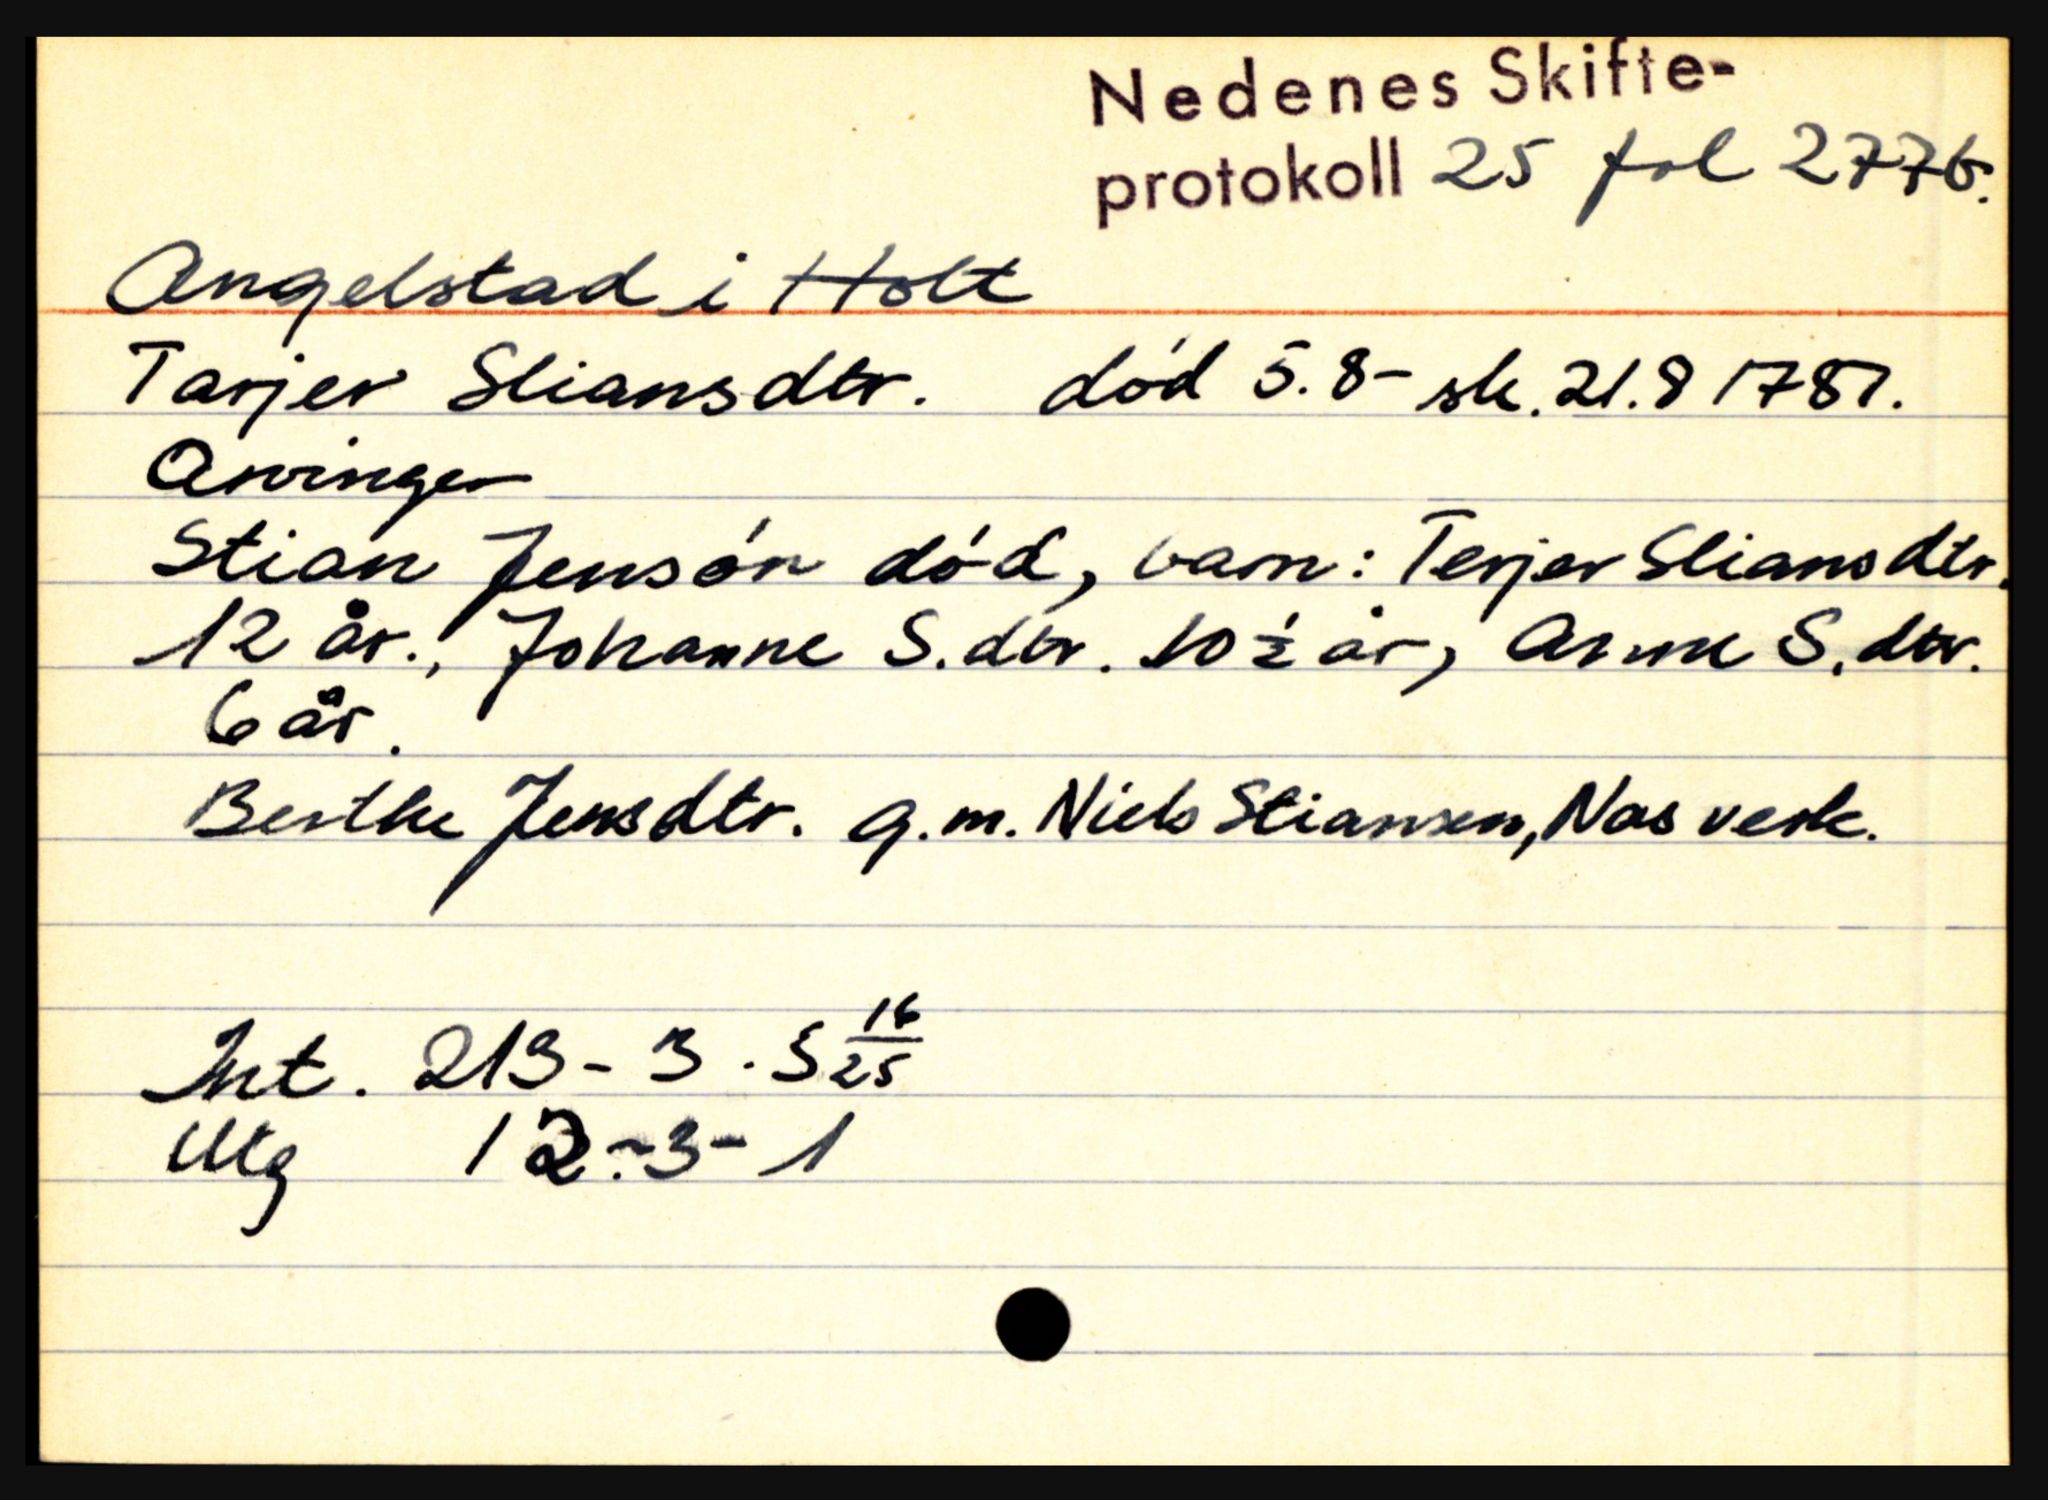 Nedenes Skifte-
protokoll 25 fol 277b.
Angelstad i Holt
Tarjer Stiansdtr. død 5.8- sk. 21.8 1781.
Arvinger
Stian Jensøn død, barn: Terjer Stiansdtr.
12 år., Johanne S. dtr. 10 ½ år, Anne S. dtr.
6 år.
Berthe Jensdtr. g.m. Niels Stiansen, Nas verk.
Int. 213 - 3 . 3 16/25
Utg 12 - 3 - 1